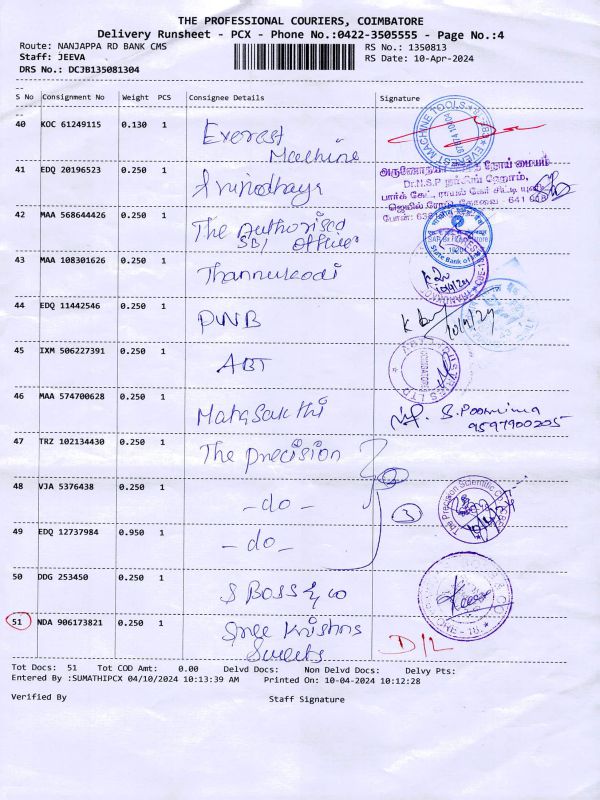 THE PROFESSIONAL COURIERS, COIMBATORE
Delivery Runsheet - PCX - Phone No.:0422-3505555 - Page No.:4
Route: NANJAPPA RD BANK CMS
RS No.: 1350813
Staff: JEEVA
RS Date: 10-Apr-2024
DRS No.: DCJB135081304
S No Consignment No Weight PCS Consignee Details Signature
40 KOC 61249115 0.130 1 Everest Machine
EVEREST MACHINE TOOLS
41 EDQ 20196523 0.250 1
நோய் மையம்
Dr.M.S.P
பார்க் கேட், ராயல் கேர் சிட்டி
ஜெயில் ரோடு, கோவை - 641 018
42 MAA 568644426 0.250 1 The Authorised SBI Officer
State Bank of
43 MAA 108301626 0.250 1 Thannukodi
10/4/24
44 EDQ 11442546 0.250 1 PNB
10/4/24
45 IXM 506227391 0.250 1 ABT
COIMBATORE
46 MAA 574700628 0.250 1 Mahasakthi
S. Poornima
9597900205
47 TRZ 102134430 0.250 1 The precision
48 VJA 5376438 0.250 1 -do-
3
The Precision Scientific Co
10/4/24
49 EDQ 12737984 0.950 1 -do-
50 DDG 253450 0.250 1 S BOSS & co
51 NDA 906173821 0.250 1 Sree Krishna Sweets
D/L
Tot Docs: 51 Tot COD Amt: 0.00 Delvd Docs: Non Delvd Docs: Delvy Pts:
Entered By :SUMATHIPCX 04/10/2024 10:13:39 AM Printed On: 10-04-2024 10:12:28
Verified By Staff Signature